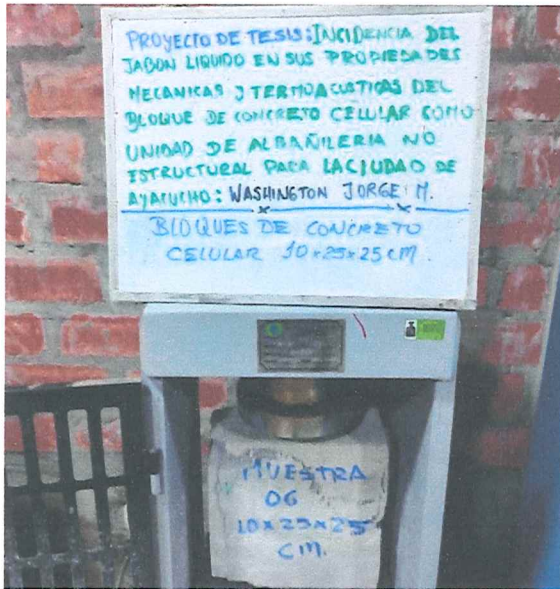 PROYECTO DE TESIS: INCIDENCIA DEL
JABON LIQUIDO EN SUS PROPIEDADES
MECANICAS Y TERMOACUSTICAS DEL
BLOQUE DE CONCRETO CELULAR COMO
UNIDAD DE ALBAÑILERIA NO
ESTRUCTURAL PARA LA CIUDAD DE
AYACUCHO: WASHINGTON JORGE M.
BLOQUES DE CONCRETO
CELULAR 10x25x25 CM.
MUESTRA
06
10x25x25
CM.